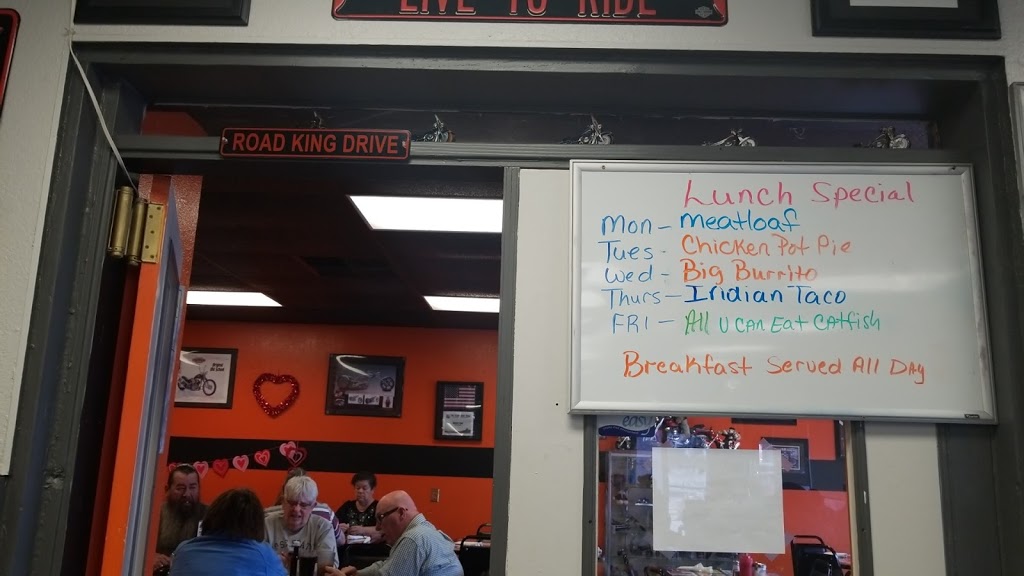 LIVE TO RIDE
ROAD KING DRIVE
Lunch Special
Mon - Meatloaf
Tues - Chicken Pot Pie
Wed - Big Burrito
Thurs - Indian Taco
FRI - All U CAN EAt CAtfish
Breakfast Served All DAy
easy